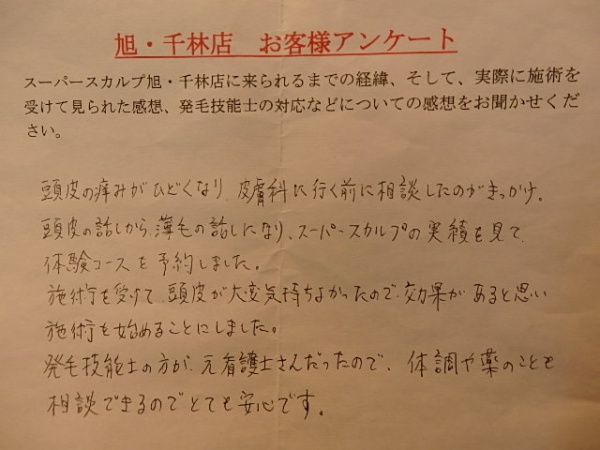 旭・千林店　お客様アンケート
スーパースカルプ旭・千林店に来られるまでの経緯、そして、実際に施術を
受けて見られた感想、発毛技能士の対応などについての感想をお聞かせくだ
さい。
頭皮の痒みがひどくなり 皮膚科に行く前に相談したのがきっかけ。
頭皮の話しから、薄毛の話しになり、スーパースカルプの実績を見て
体験コースを予約しました。
施術を受けて、頭皮が大変気持ちよかったので、効果があると思い
施術を始めることにしました。
発毛技能士の方が、元看護士さんだったので、体調や薬のことも
相談できるのでとても安心です。